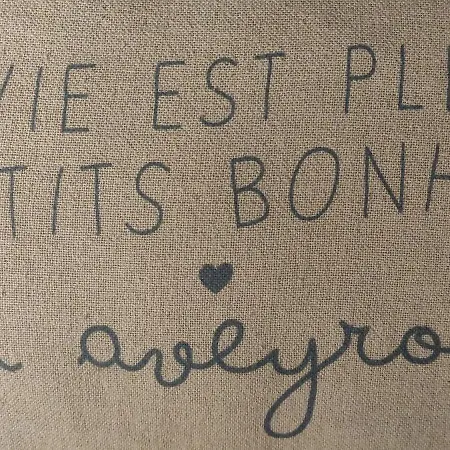 VIE EST PLE
TITS BONH
aveyro